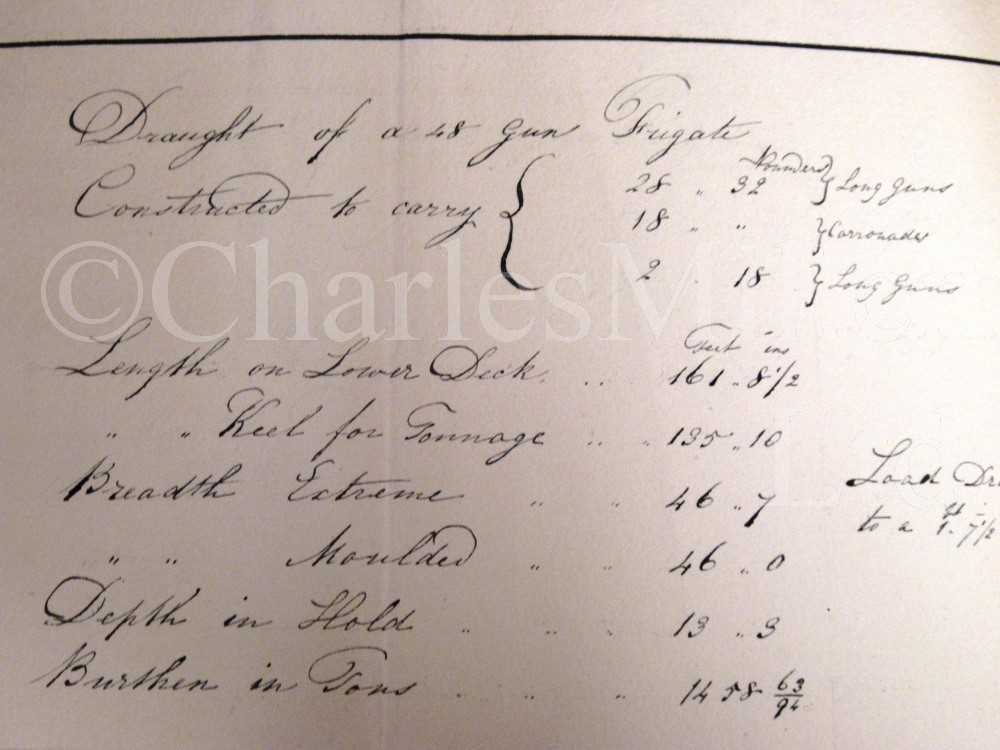 Draught of a 48 Gun Frigate
Pounders
Constructed to carry { 28 „ 32 } Long Guns
18 „ „ } Carronades
2 „ 18 } Long Guns
©CharlesM
Feet ins
Length on Lower Deck „ „ 161 „ 8 1/2
„ „ Keel for Tonnage „ „ 135 „ 10
Breadth Extreme „ „ 46 „ 7
Load Dr
„ „ Moulded „ „ 46 „ 0
to a 1. 7 1/2
Depth in Hold „ „ „ 13 „ 3
Burthen in Tons „ „ „ 1458 63/94